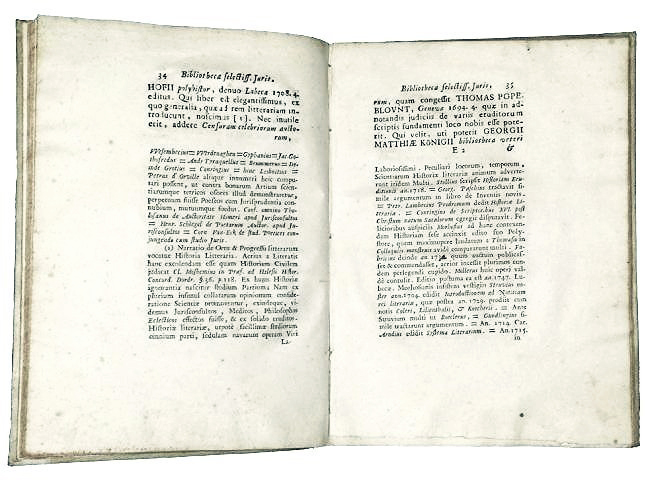 34 Bibliotheca selectiss. Juris.
HOFII polyhistor, denuo Lubecæ 1708. 4.
editus. Qui liber ed elegantissimus, ex
quo generalia, quæ ad rem litterariam in-
troducunt, noscimus [1]. Nec inutile
erit, addere Censuram celebriorum aucto-
rum,
Wesembecius = = Gyphanius = Jac. Go-
thofredus = Andr. Tyraquellus = Brummerus = De-
inde Grotius = Conringius = hinc Leibnitius =
Petrus d'Orville aliique innumeri huic compu-
tari possent, ut contra bonarum Artium Scien-
tiarumque tetricos osores illud demonstraretur,
perpetuum fuisse Poeseos cum Jurisprudentia con-
nubium, mutuumque foedus. Conf. omnino Tho-
masianus de Auctoritate Homeri apud Juriscon-
sultos = Henr. Schlegel de Poetarum Auctor. apud Ju-
risconsultos = Car. Pau-Eck de stud. Poetices con-
jungendo cum studio Juris.
1) Narratio de Ortu & Progressu litterarum
vocatur Historia Litteraria. Acrius a Literatis
hanc excolendam esse quam Historiam Civilem
judicat Cl. Moshemius in Præf. ad Halesii Histor.
Concord. Dordr. §. 36. p. 118. Ex hujus Historiæ
agrorantia nascitur studium Partium; Nam ex
plurium insimul collatarum opinionum confide-
ratione Scientiæ ornantur, eiusdemque, vi-
demus Jurisconsultos, Medicos, Philosophos
Eclecticos effectos fuisse, & ex solido eruditos.
Historiæ literariæ, utpote facillimæ studiorum
omnium parti, sedulam navarunt operam Viri
La-
Bibliotheca selectiss. Juris. 35
rum, quam congessit THOMAS POPE
BLOUNT, Genevæ 1694. 4. quæ in ad-
notandis judiciis de variis eruditorum
scriptis fundamenti loco nobis esse pote-
rit. Qui velit, uti poterit GEORGII
MATTHIÆ KONIGII bibliotheca veteri
E 2 &
Laboriosissimi. Peculiari locorum, temporum,
Scientiarum Historiæ literariæ animum adverte-
runt iridem Multi. Stollius Scripsit Historiam Eru-
ditionis a. 1718. = Georg. Paschius tractavit si-
mile argumentum in libro de Inventis novis-
= Petr. Lambecius Prodromum dedit Historiæ Li-
terariæ. = Conringius de Scriptoribus XVI. post
Christum natum Sæculorum egregie disputavit. Fe-
licioribus auspiciis Morhofius ad hanc contexen-
dam Historiam sese accinxit edito suo Poly-
store, quem maximopere laudatum a Thomasio in
Colloquiis menstruis avidi comparunt multi. Fa-
bricius deinde an. quum auctum publicas-
set & commendasset, acrior incessit plurimos eun-
dem perlegendi cupido. Mollerus huic operi vali-
dæ contulit. Editio postuma ea est an. 1747. Lu-
becæ. Morhofianis insistens vestigiis Struvius no-
ster an. 1704. edidit Introductionem ad Notitiam
rei literariæ, quæ postea an. 1729. prodiit cum
notis Coleri, Lilienthalii, & Koecheri. = Ante
Struvium multi ut Boeclerus, = Gundlingius si-
mile tractarunt argumentum. = An. 1714. Car.
Arndius edidit Systema Literarium. = An. 1715.
in